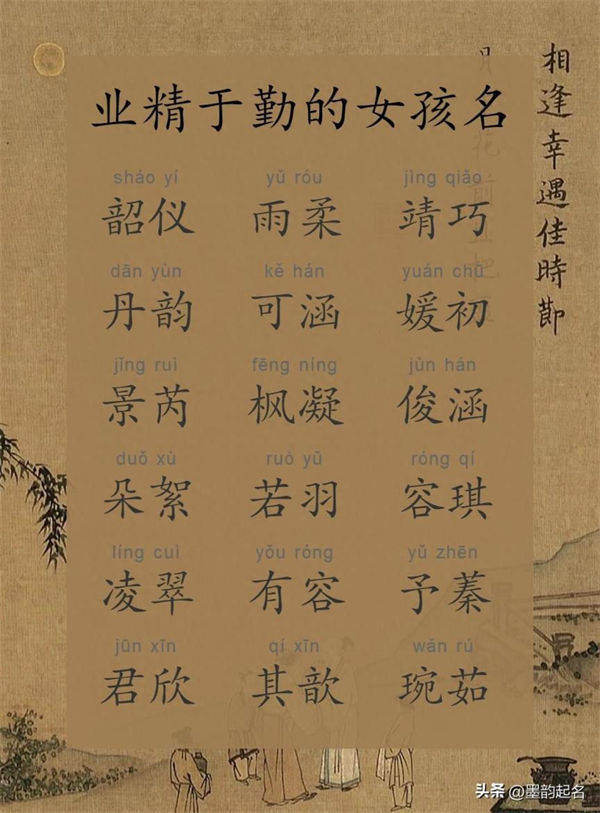 业精于勤的女孩名
sháo yí yǔ róu jìng qiǎo
韶仪 雨柔 靖巧
dān yùn kě hán yuán chū
丹韵 可涵 媛初
jǐng ruì fēng níng jùn hán
景芮 枫凝 俊涵
duǒ xù ruò yǔ róng qí
朵絮 若羽 容琪
líng cuì yǒu róng yǔ zhēn
凌翠 有容 予蓁
jūn xīn qí xīn wǎn rú
君欣 其歆 琬茹
相逢幸遇佳時節
头条 @墨韵起名